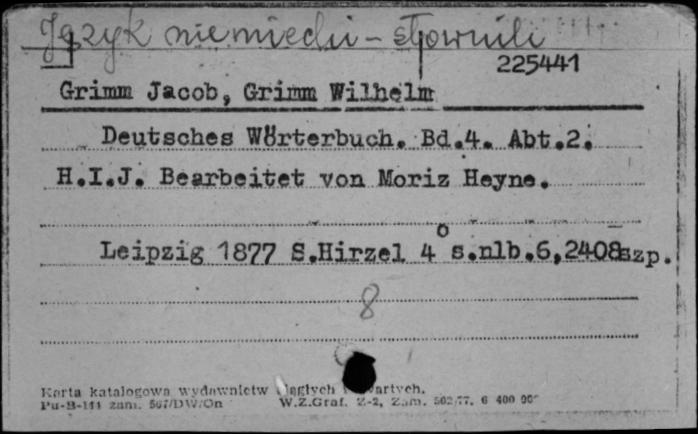 Język niemiecki - słowniki
225441
Grimm Jacob, Grimm Wilhelm
Deutsches Wörterbuch. Bd.4. Abt.2.
H.I.J. Bearbeitet von Moriz Heyne.
Leipzig 1877 S.Hirzel 4° s.nlb.6,2408szp.
8
Karta katalogowa wydawnictw ciągłych
Pu-B-144 zam. 567/DW/On W.Z.Graf. Z-2, Zam. 502/77. 6 400 000